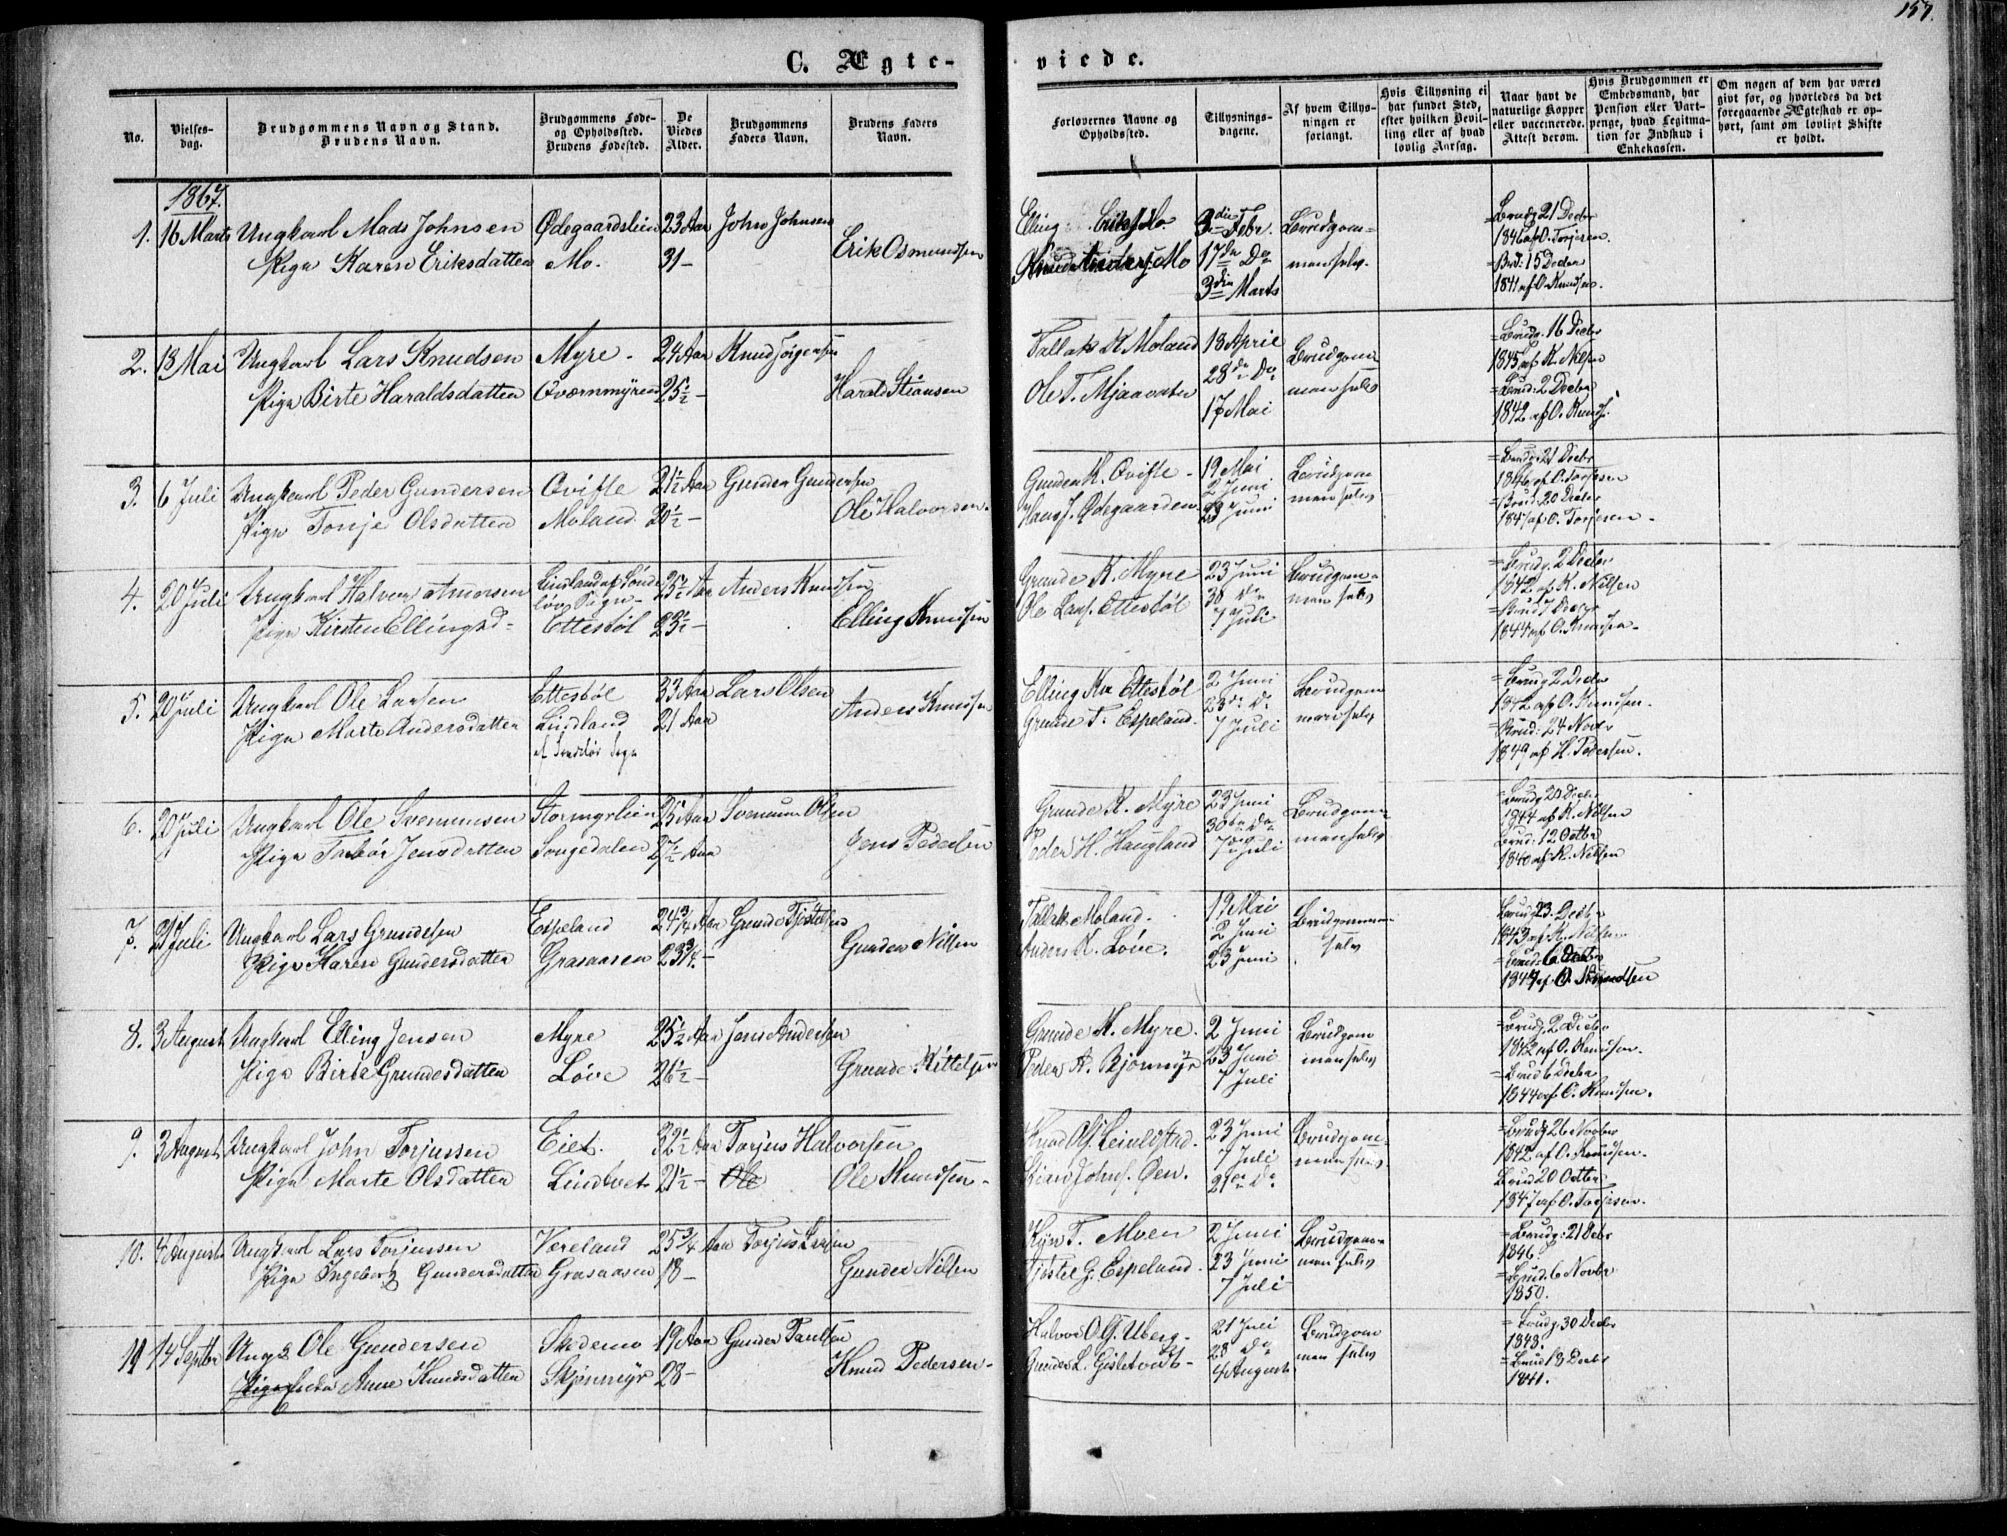 157.
C. Ægte-
viede.
No.
Vielses-
dag.
Brudgommens Navn og Stand.
Brudens Navn.
Brudgommens Føde-
og Opholdssted.
Brudens Fødested.
De
Viedes
Alder.
Brudgommens
Faders Navn.
Brudens Faders
Navn.
Forlovernes Navne og
Opholdssted.
Tillysnings-
dagene.
Af hvem Tillys-
ningen er
forlangt.
Hvis Tillysning ei
har fundet Sted,
efter hvilken Bevil-
ling eller af hvad
lovlig Aarsag.
Naar havt de
naturlige Kopper
eller vaccinerede.
Attest derom.
Hvis Brudgommen er
Embedsmand, har
Pension eller Vart-
penge, hvad Legitima-
tion for Indskud i
Enkekassen.
Om nogen af dem har været
givt før, og hvorledes da det
foregaaende Ægteskab er op-
hørt, samt om lovligt Skifte
er holdt.
1867.
1. 16 Marts Ungkarl Mads Johnsen Ødegaardslien 23 Aar John Johnsen
Pige Karen Eriksdatter Mo. 31 - Erik Osmundsen
Elling Mo. 3die Febr. Brudgom-
Mo 17de Do men selv.
3die Marts
Brudg 21 Decbr
1846 af O. Torjesen.
Brd: 15 Decbr
1841 af O. Knudsen.
2. 18 Mai Ungkarl Lars Knudsen Myre - 24 Aar Knud Jørgensen
Pige Birte Haraldsdatter Qværnmyren 25½ - Harald Stiansen
Tallak K Moland 18 April Brudgom-
Ole T. Mjaavatn 28de Do men selv
17 Mai
Brudg. 16 Decbr
1845 af K. Nilsen
Brud: 2 Decbr
1842 af O. Knuds.
3. 6 Juli Ungkarl Peder Gundersen Qvifte 21½ Aar Gunder Gundersen
Pige Tonje Olsdatter Moland 20½ - Ole Halvorsen.
Gunder K. Qvifte - 19 Mai Brudgom
Hans J. Ødegaarden 2 Juni men selv
23 Juni
Brudg: 21 Decbr
1846 af O. Torjesen
Brud: 20 Decbr
1847 af O. Torjesen -
4. 20 Juli Ungkarl Halvor Andersen Lindland af Sønde- 25½ Aar Anders Knudsen
løv Sogn -
Pige Kirsten Ellingsd- Ettestøl 23½ - Elling Knudsen
Grunde K. Myre 23 Juni Brudgom-
Ole Lars. Ettestøl 30 Do men selv
7 Juli
Brudg. 2 Decbr
1842 af K. Nilsen
1844 af O. Knudsen -
5. 20 Juli Ungkarl Ole Larsen Ettestøl 33 Aar Lars Olsen
Pige Marte Andersdatter Lindland 21 Aar Anders Knudsen
af Søndeløv Sogn
Elling Kn Ettestøl 2 Juni Brudgom
Grunde T. Espeland. 23de Do men selv
7 Juli
Brudg 2 Decbr
1842 af O. Knudsen.
Brud: 24 Novbr
1849 af H. Pedersen.
6. 20 Juli Ungkarl Ole Svenumsen Stormyrlien 25 Aar Svenum Olsen
Pige Torbør Jensdatter Songedalen 27½ Aar Jens Pedersen
Grunde K. Myre 23 Juni Brudgom-
Peder H. Haugland 30te Do men selv
7 Juli
1844 af K. Nilsen
Brud: 12 Octbr
1840 af K. Nilsen
7. 21 Juli Ungkarl Lars Grundesen Espeland 24¾ Aar Grunde Tjøstelsen
Pige Karen Gundersdatter Graaasen 23¾ - Gunder Nilsen
Tallak Moland. 19 Mai Brudgommen
Anders K. Løve. 2 Juni selv
23 Juni
Brudg 23 Decbr
1843 af K. Nilsen
1844 af O. Knudsen
8. 3 August Ungkarl Elling Jensen Myre 25½ Aar Jens Andersen
Pige Birte Grundesdatter Løve 26½ - Grunde Kittelsen
Grunde K. Myre. 2 Juni Brudgom
Peder A. Bjønmyr 23 Juni men selv
7 Juli
Brudg. 2 Decbr
1842 af O. Knudsen.
Brud 6 Decbr
1844 af O. Knudsen.
9. 3 August Ungkarl John Torjussen Eiet. 32½ Aar Torjus Halvorsen
Pige Marte Olsdatter Lindtvet 21½ - Ole Ole Knudsen -
Knud Ols. 23 Juni Brudgom-
Johns. Øen. 7 Juli men selv.
21de Do
Brudg 26 Novbr
1842 af O. Knudsen.
Brud 20 Octbr
1847 af O. Torjesen.
10. 4 August Ungkarl Lars Torjussen Væreland 25¾ Aar Torjus Larsen
Pige Ingeborg Gundersdatter Graaasen 18 - Gunder Nilsen
T. Moen 2 Juni Brudgom-
Tjøstel G. Espeland. 23 Juni men selv
7 Juli
Brudg: 21 Decbr
1846.
Brud. 6 Novbr
1850.
11 14 Septbr Ungk Ole Gundersen Skodemo 19 Aar Gunder Paulsen
Pige Enke Anne Knudsdatter Skjønmyr 28 - Knud Pedersen -
Halvor O. G. Uberg - 21 Juli Brudgom
Gunder L. 28 Do men selv
4 August
Brudg. 30 Decbr
1848.
Brud 18 Decbr
1841.